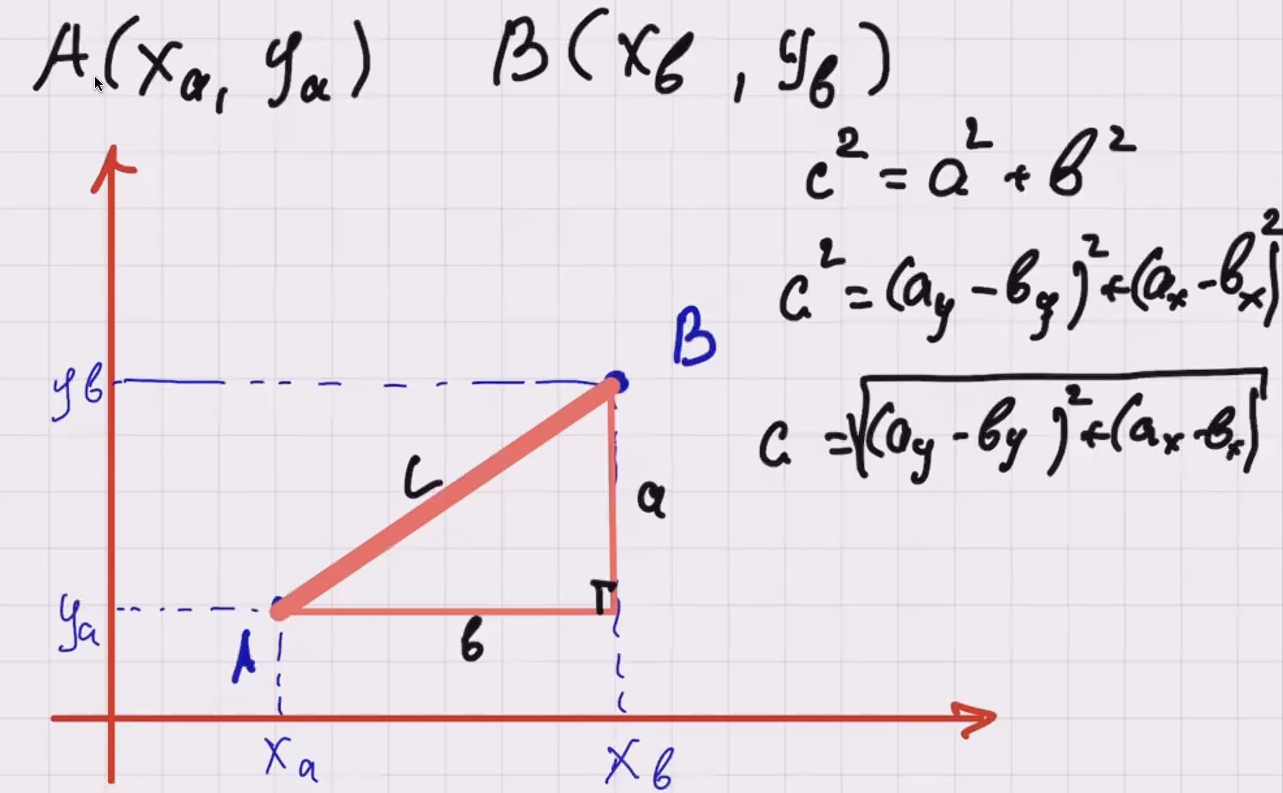 A(xₐ, yₐ) B(x_b, y_b)
c² = a² + b²
c² = (a_y - b_y)² + (a_x - b_x)²
c = √((a_y - b_y)² + (a_x - b_x)
B
y_b
c
a
y_a
A
b
x_a x_b